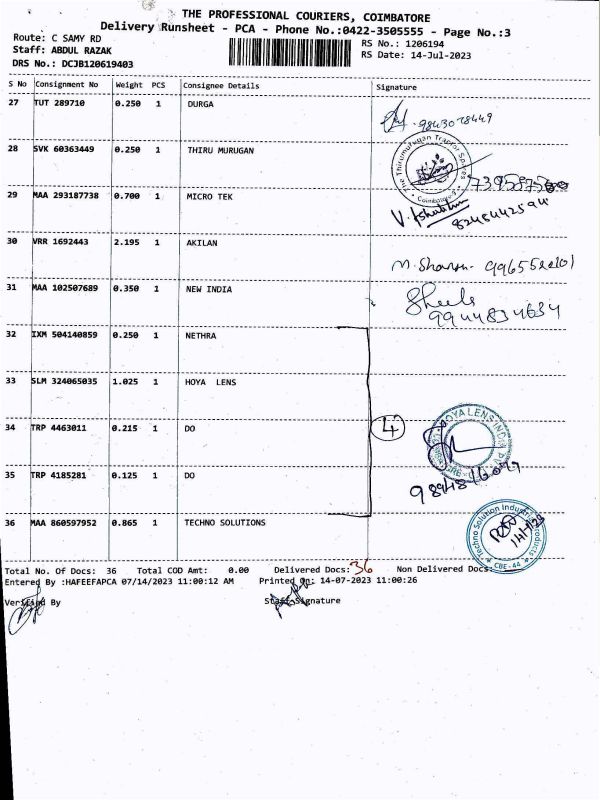 THE PROFESSIONAL COURIERS, COIMBATORE
Delivery Runsheet - PCA - Phone No.:0422-3505555 - Page No.:3
Route: C SAMY RD RS No.: 1206194
Staff: ABDUL RAZAK RS Date: 14-Jul-2023
DRS No.: DCJB120619403
S No Consignment No Weight PCS Consignee Details Signature
27 TUT 289710 0.250 1 DURGA
9843078449
28 SVK 60363449 0.250 1 THIRU MURUGAN
The Thirumurugan Tractor Spares
Coimbatore
29 MAA 293187738 0.700 1 MICRO TEK
30 VRR 1692443 2.195 1 AKILAN
31 MAA 102507689 0.350 1 NEW INDIA
9944834634
32 IXM 504140859 0.250 1 NETHRA
33 SLM 324065035 1.025 1 HOYA LENS
34 TRP 4463011 0.215 1 DO
4
HOYA LENS INDIA
35 TRP 4185281 0.125 1 DO
36 MAA 860597952 0.865 1 TECHNO SOLUTIONS
Techno Solution Industrial Products
CBE-44
Total No. Of Docs: 36 Total COD Amt: 0.00 Delivered Docs: 36 Non Delivered Docs:
Entered By :HAFEEFAPCA 07/14/2023 11:00:12 AM Printed On: 14-07-2023 11:00:26
Verified By Staff Signature